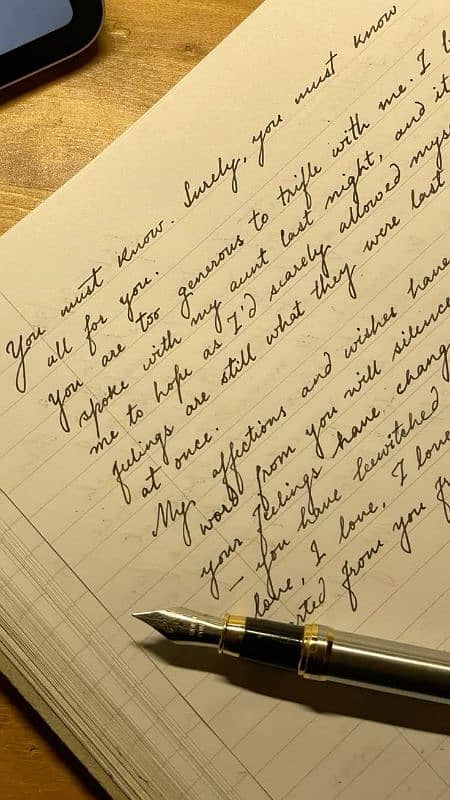 You must know. Surely, you must know
all for you.
you are too generous to trifle with me. I
spoke with my aunt last night, and it
me to hope as I'd scarely allowed mys
feelings are still what they were last
at once.
My affections and wishes have
word from you will silence
your feelings have chang
– you have bewitched
love, I love, I love
rted from you fr